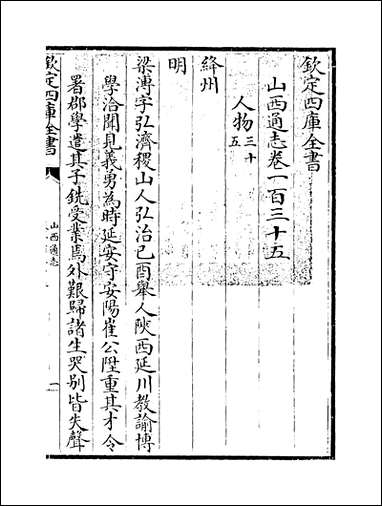 欽定四庫全書
山西通志卷一百三十五
人物三十五
絳州
明
梁溥字弘濟稷山人弘治己酉舉人陝西延川教諭博
學洽聞見義勇為時延安守安陽崔公陞重其才令
署郡學遣其子銑受業焉外艱歸諸生哭别皆失聲
欽定四庫全書
山西通志
一